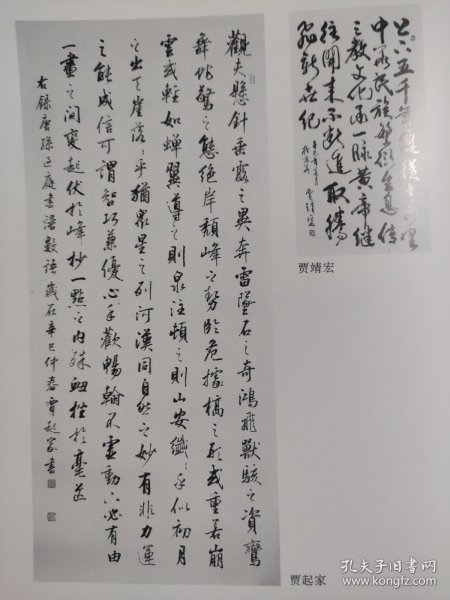 觀夫懸針垂露之異奔雷墜石之奇鴻飛獸駭之資鸞
舞蛇驚之態絕岸頹峰之勢臨危據槁之形或重若崩
雲或輕如蟬翼導之則泉注頓之則山安纖纖乎似初月
之出天崖落落乎猶眾星之列河漢同自然之妙有非力運
之能成信可謂智巧兼優心手歡暢翰不虛動下必有由
一畫之間變起伏於峰杪一點之内殊衄挫於毫芒
右錄唐孫過庭書譜數語歲在辛巳仲春賈起家書
上下五千年縱橫
中華民族繁衍生息傳
三教文化承一脉黄帝繼
往開来不断進取騰
飛新世紀
贾靖宏
贾起家
孔夫子旧书网
www.kongfz.com